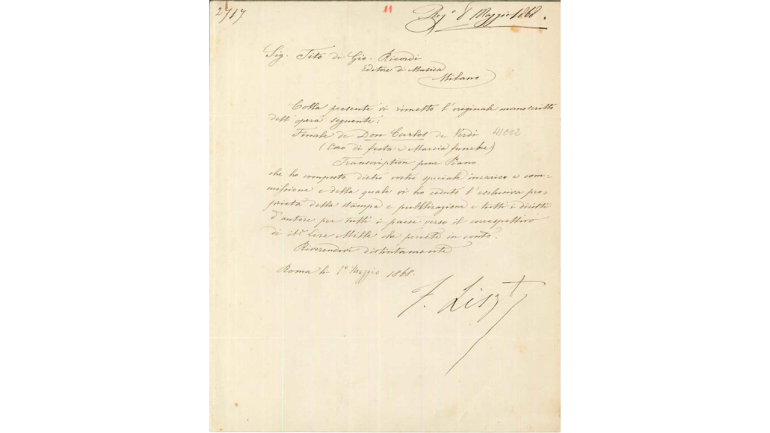 2717
11
8 Maggio 1868.
Sig. Tito di Gio. Ricordi
Editore di Musica
Milano
Colla presente vi rimetto l'originale manoscritto
dell'opera seguente:
Finale de Don Carlos de Verdi 41002
(Coro di festa e Marcia funebre)
Transcription pour Piano
che ho composto dietro vostro speciale incarico e com-
missione e della quale vi ho ceduto l'esclusiva pro-
prietà della stampa e pubblicazione e tutti i diritti
d'autore per tutti i paesi verso il correspettivo
di it. Lire Mille che ponete in conto.
Riverendovi distintamente
Roma li 1° Maggio 1868.
F. Liszt